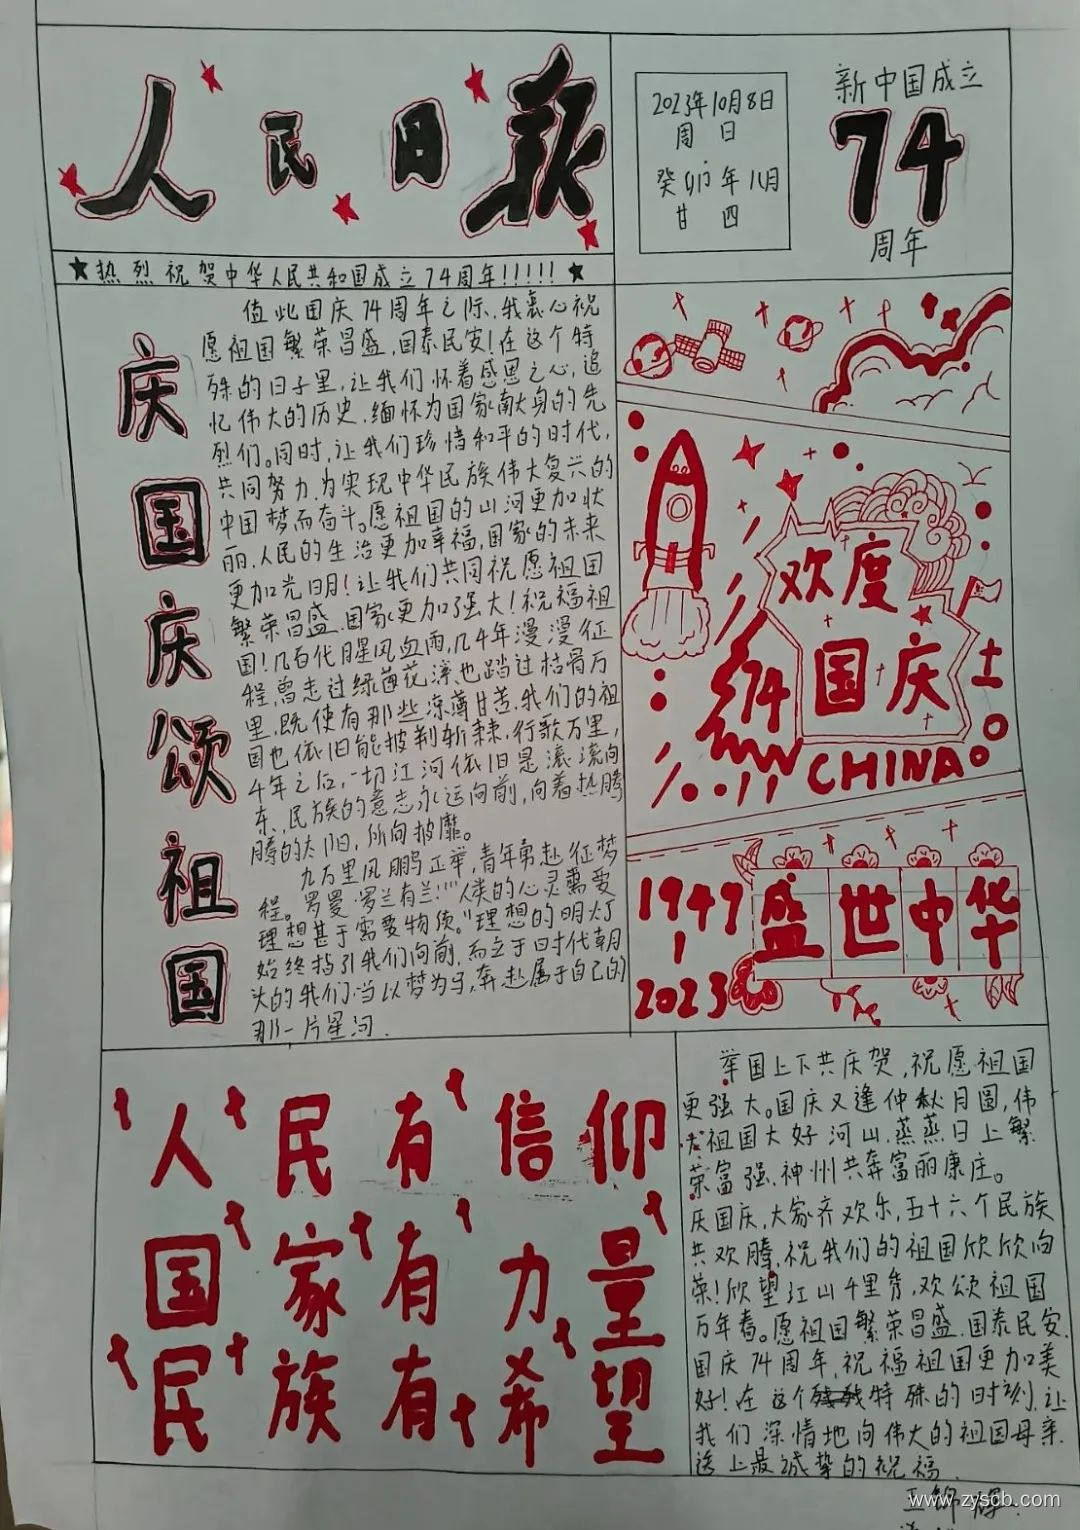 人民日报
2023年10月8日
周日
癸卯年八月
廿四
新中国成立
74
周年
★热烈祝贺中华人民共和国成立74周年!!!!!★
庆国庆颂祖国
值此国庆74周年之际,我衷心祝
愿祖国繁荣昌盛,国泰民安!在这个特
殊的日子里,让我们怀着感恩之心,追
忆伟大的历史,缅怀为国家献身的先
烈们。同时,让我们珍惜和平的时代,
共同努力,为实现中华民族伟大复兴的
中国梦而奋斗。愿祖国的山河更加壮
丽,人民的生活更加幸福,国家的未来
更加光明!让我们共同祝愿祖国
繁荣昌盛,国家更加强大!祝福祖
国!几百代腥风血雨,几千年漫漫征
程,曾走过绿茵花溪,也踏过枯骨万
里,既使有那些凉薄甘苦,我们的祖
国也依旧能披荆斩棘,行歌万里,
千年之后,一切江河依旧是滚流向
东,民族的意志永远向前,向着热腾
腾的太阳,所向披靡。
九万里风鹏正举,青年勇赴征梦
程。罗曼·罗兰有兰:“人类的心灵需要
理想甚于需要物质。”理想的明灯
始终指引我们向前,而立于时代朝
头的我们,当以梦为马,奔赴属于自己的
那一片星河.
欢度
国庆
74
CHINA
1949
2023
盛世中华
人民有信仰
国家有力量
民族有希望
举国上下共庆贺,祝愿祖国
更强大。国庆又逢仲秋月圆,伟
大祖国大好河山,蒸蒸日上繁
荣富强,神州共奔富丽康庄。
庆国庆,大家齐欢乐,五十六个民族
共欢腾,祝我们的祖国欣欣向
荣!欣望江山千里秀,欢颂祖国
万年春。愿祖国繁荣昌盛,国泰民安.
国庆74周年,祝福祖国更加美
好!在这个特殊的时刻,让
我们深情地向伟大的祖国母亲
送上最诚挚的祝福.
www.zyscb.com